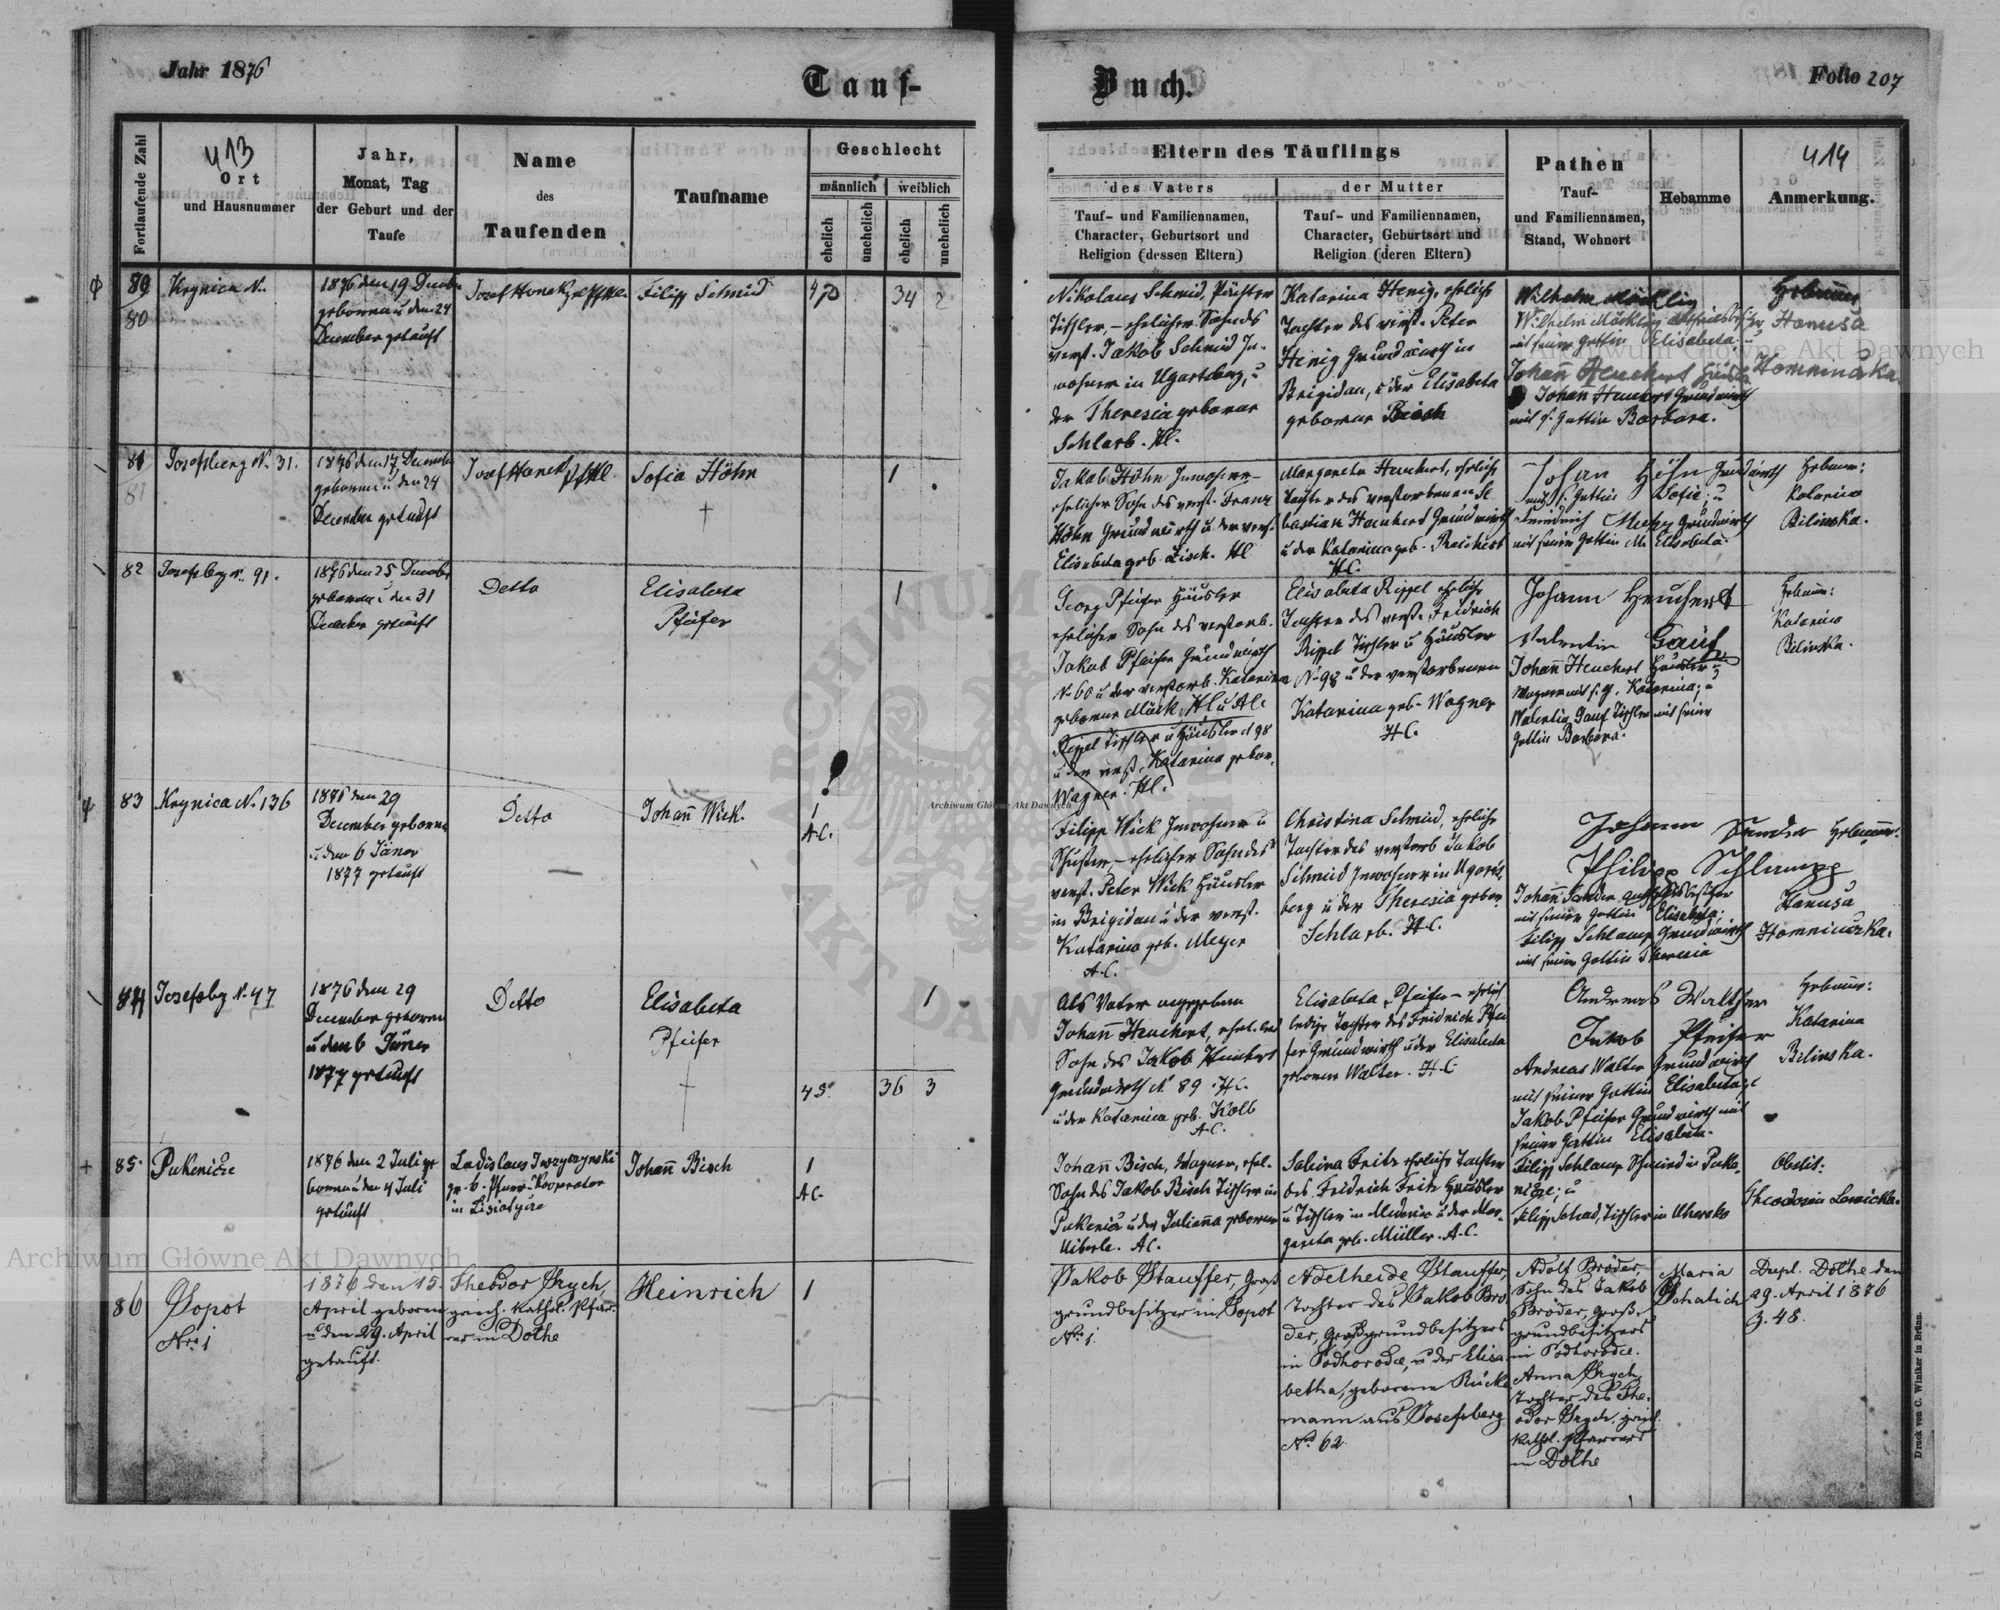 Jahr 1876
Tauf-
413
Fortlaufende Zahl
Ort
und Hausnummer
Jahr,
Monat, Tag
der Geburt und der
Taufe
Name
des
Taufenden
Taufname
Geschlecht
männlich
weiblich
ehelich
unehelich
ehelich
unehelich
80
80
Krynica N.
1876 den 19 Decemb.
geboren u. den 24
December getauft
Josef Honek
Filipp Schmid
34
2
81
81
Josefsberg N. 31.
1876 den 17 December
geboren u. den 24
December getauft
Josef Honek
Sofia Höhn
1
82
Josefsbg N. 91.
1876 den 25 Decemb.
geboren u. den 31
December getauft
Detto
Elisabeta
Pfeifer
1
83
Krynica N. 136
1876 den 29
December geboren
u. den 6 Jäner
1877 getauft
Detto
Johañ Wick.
1
A.C.
84
Josefsbg N. 47
1876 den 29
December geboren
u. den 6 Jäner
1877 getauft
Detto
Elisabeta
Pfeifer
1
45.
36
3
85.
Pukenicze
1876 den 2 Juli ge
boren u. den 4 Juli
getauft
Ladislaus
Johañ Bisch
1
A.C.
86
Sopot
Nr. 1
1876 den 15.
April geboren
u. den 29. April
getauft.
Theodor
griech. kathol. Pfar-
rer in Dolhe
Heinrich
1
Buch.
Folio 207
414
Eltern des Täuflings
des Vaters
Tauf- und Familiennamen,
Character, Geburtsort und
Religion (dessen Eltern)
der Mutter
Tauf- und Familiennamen,
Character, Geburtsort und
Religion (deren Eltern)
Pathen
Tauf-
und Familiennamen,
Stand, Wohnort
Hebamme
Anmerkung.
Nikolaus Schmid, Pächter
Tischler, - ehelicher Sohn des
verst. Jakob Schmid In-
wohner in Ugartsberg, u
der Theresia geborne
Schlarb. H.C.
Katarina Henig, eheliche
Tochter des verst. Peter
Henig Grundwirth in
Brigidau, u der Elisabeta
geborne Bisch
Wilhelm Möckling
Wilhelm Möckling
mit seiner Gattin Elisabeta; u
Johañ Heuchert
Johañ Heuchert Grundwirth
mit s. Gattin Barbara.
Hebamme
Hanusa
Homniuska
Jakob Höhn Inwohner -
ehelicher Sohn des verst. Franz
Höhn Grundwirth u der verst.
Elisabeta geb. Zisch. H.C.
Margareta Heuchert, eheliche
Tochter des verstorbenen Se
bastian Heuchert Grundwirth
u der Katarina geb. Reichert
H.C.
Johan Höhn Grundwirth
mit s. Gattin Sofie; u
Friedrich Grundwirth
mit seiner Gattin M. Elisabeta.
Hebamme:
Katarina
Bilinska.
Georg Pfeifer Häusler
ehelicher Sohn des verstorb.
Jakob Pfeifer Grundwirth
N. 60 u der verstorb. Katarina
geborne Mück, H.C. u A.C.
Rippel Tischler u Häusler N 98
u der verst. Katarina gebor.
Wagner. H.C.
Elisabeta Rippel eheliche
Tochter des verst. Fridrich
Rippel Tischler u Häusler
N. 98 u der verstorbenen
Katarina geb. Wagner
H.C.
Johann Heuchert
Valentin Gauf
Johañ Heuchert Häusler u
Wagner mit s. G. Katarina; u
Valentin Gauf Tischler mit seiner
Gattin Barbara.
Hebamme:
Katarina
Bilinska.
Filipp Wick Inwohner u
Schuster, - ehelicher Sohn des
verst. Peter Wick Häusler
in Brigidau u der verst.
Katarina geb. Meyer
A.C.
Christina Schmid, eheliche
Tochter des verstorb Jakob
Schmid Inwohner in Ugarts-
berg u der Theresia gebor.
Schlarb. H.C.
Johann Sander
Philipp Schlamp
Johañ Sander
mit seiner Gattin Elisabeta;
Filipp Schlamp Grundwirth
mit seiner Gattin Theresia
Hebamme:
Hanusa
Homniuszka.
Als Vater angegeben
Johañ Heuchert, ehel. led
Sohn des Jakob Heuchert
Grundwirth N 89 . H.C.
u der Katarina geb. Kolb
A.C.
Elisabeta Pfeifer - ehelich
ledige Tochter des Fridrich Pfei
fer Grundwirth u der Elisabeta
geborne Walter. H.C
Andreas Walther
Jakob Pfeifer
Andreas Walter Grundwirth
mit seiner Gattin Elisabeta; u
Jakob Pfeifer Grundwirth mit
seiner Gattin Elisabeta.
Hebamme:
Katarina
Bilinska.
Johañ Bisch, Wagner, ehel.
Sohn des Jakob Bisch Tischler in
Pukenicz u der Julianna geborne
Uiberle. A.C.
Sabina Fritz eheliche Tochter
des Fridrich Fritz Häusler
u Tischler in Medenice u der Mar-
gareta geb. Müller. A.C.
Filipp Schlamp Schmied in Puke-
nicze; u
Filipp Schad, Tischler in Uhersko
Obstit:
Theodosia Lewicka.
Jakob Stauffer, Groß
grundbesitzer in Sopot
Nr. 1
Adelheide Stauffer,
Tochter des Jakob Brö
der, Großgrundbesitzers
in Podhorodce, u der Elisa
betha, geborene Rücke
mann aus Josefsberg
Nr. 62.
Adolf Bröder
Sohn des Jakob
Bröder, Groß-
grundbesitzers
in Podhorodce.
Anna
Tochter des The
odor griech.
kathol. Pfarrers
in Dolhe
Maria
Dupl. Dolhe den
29. April 1876
Z. 48.
Druck von C. Winiker in Brünn.
Archiwum Główne Akt Dawnych
Archiwum Główne Akt Dawnych
Archiwum Główne Akt Dawnych
ARCHIWUM
AKT DAWNYCH